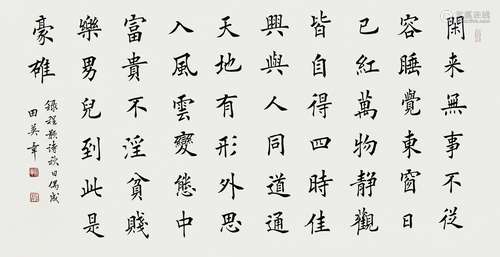 閑来無事不從
容睡覺東窗日
已紅萬物靜觀
皆自得四時佳
興與人同道通
天地有形外思
入風雲變態中
富貴不淫貧賤
樂男兒到此是
豪雄
録程顥詩秋日偶成
田英章